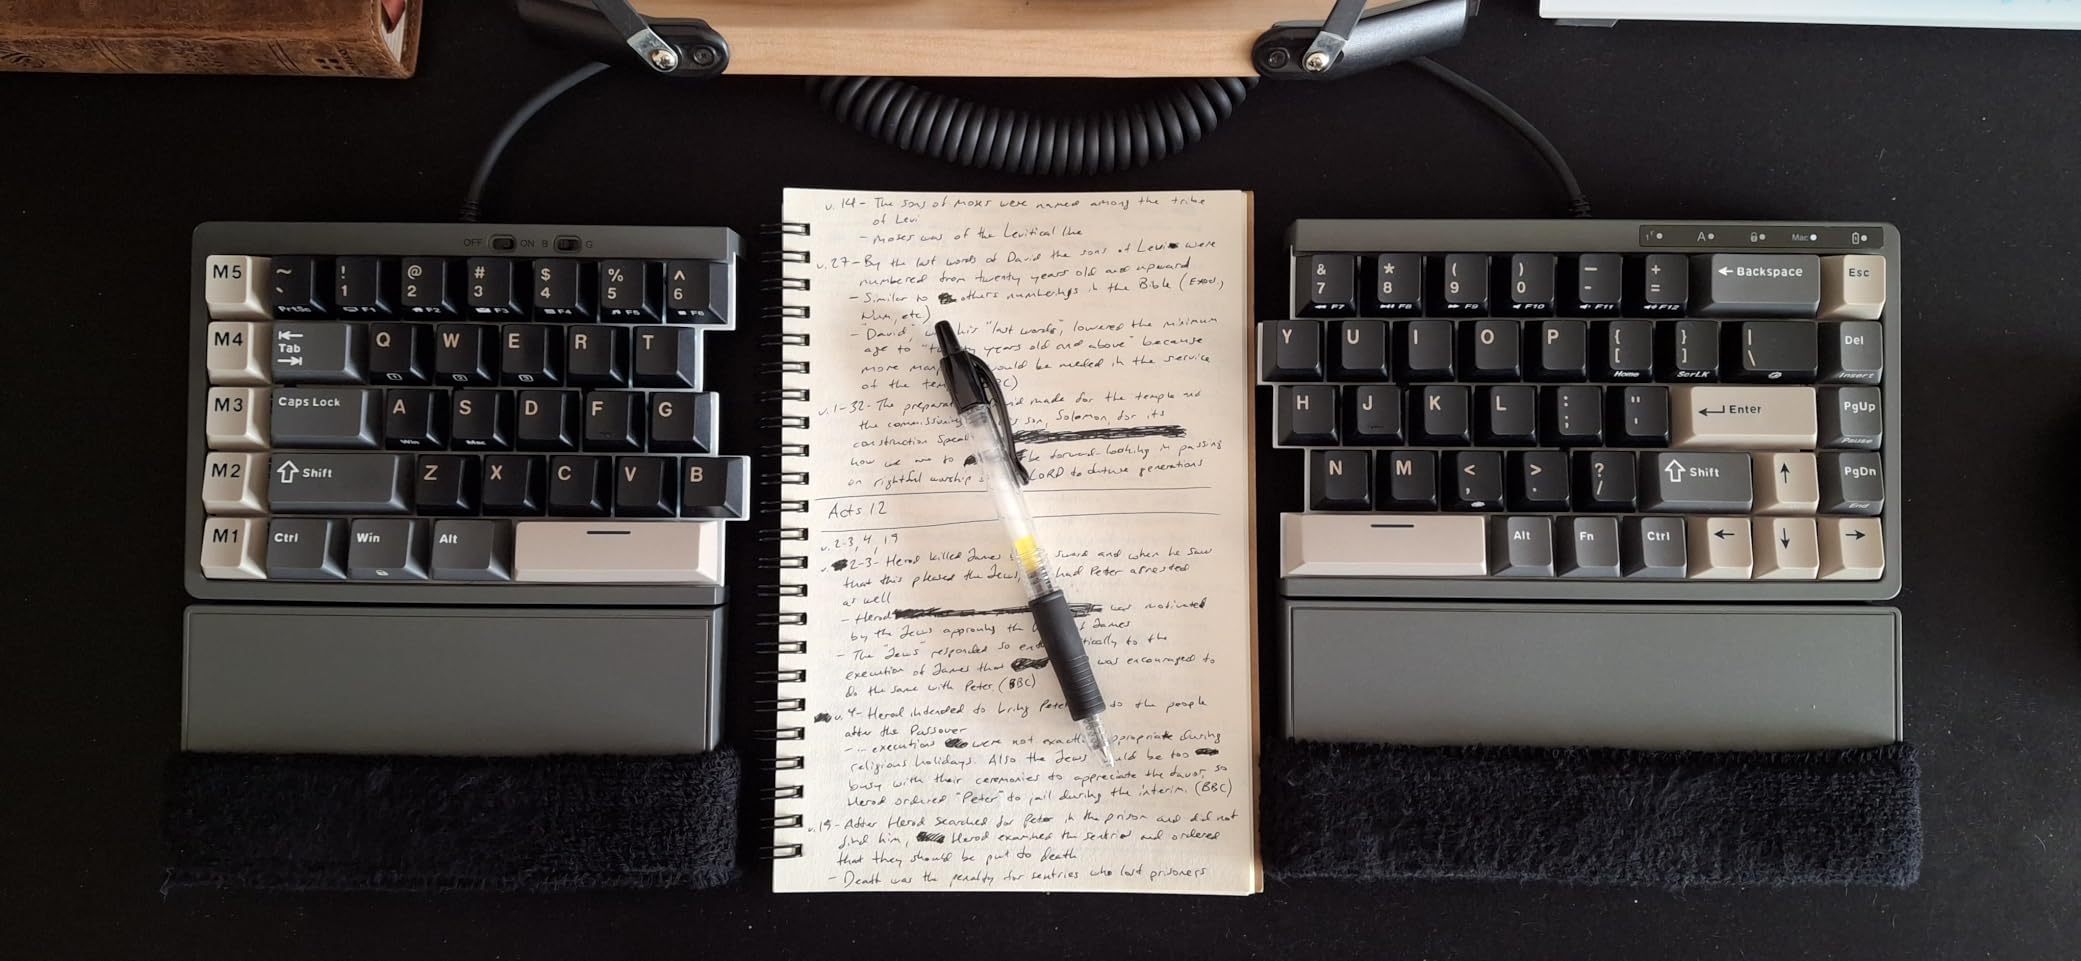 OFF ON B G
M5 ~ ` PrtSc ! 1 F1 @ 2 F2 # 3 F3 $ 4 F4 % 5 F5 ^ 6 F6
M4 Tab Q 1 W 2 E 3 R T
M3 Caps Lock A Win S Mac D F G
M2 Shift Z X C V B
M1 Ctrl Win Alt
v. 14 - The sons of Moses were named among the tribe
of Levi
- Moses was of the Levitical line
v. 27 - By the last words of David the sons of Levi were
numbered from twenty years old and upward
- Similar to others numberings in the Bible (Exod,
Num, etc)
- "David," his "last words", lowered the minimum
age to years old and above" because
more would be needed in the service
of the
v. 1-32 - The made for the temple and
the son, Solomon, for its
construction
how we are to be forward-looking in passing
on rightful worship LORD to future generations
Acts 12
v. 2-3, 4, 19
v. 2-3 - Herod killed James sword and when he saw
that this pleased the Jews, had Peter arrested
as well
- Herod was motivated
by the Jews approving the of James
- The "Jews" responded so to the
execution of James that was encouraged to
do the same with Peter. (BBC)
v. 4 - Herod intended to bring Peter to the people
after the Passover
- ... executions were not exactly during
religious holidays. Also the Jews would be too
busy with their ceremonies to appreciate the favor, so
Herod ordered "Peter" to jail during the interim. (BBC)
v. 19 - After Herod searched for Peter in the prison and did not
find him, Herod examined the sentries and ordered
that they should be put to death
- Death was the penalty for sentries who lost prisoners
A Mac
& 7 F7 * 8 F8 ( 9 F9 ) 0 F10 — - F11 + = F12 Backspace Esc
Y U I O P { [ Home } ] ScrLK | \ Del Insert
H J K L : ; " ' Enter PgUp Pause
N M < , > . ? / Shift ↑ PgDn End
Alt Fn Ctrl ← ↓ →